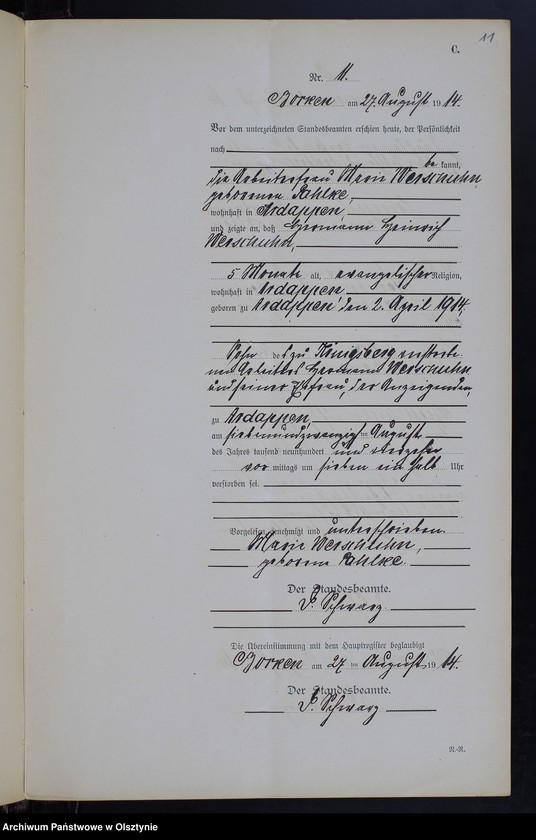 11
C.
Nr. 11.
Borken am 27. August 1914.
Vor dem unterzeichneten Standesbeamten erschien heute, der Persönlichkeit
nach
be kannt,
die Arbeiterfrau Marie Werschuhn,
geborenen Pahlke,
wohnhaft in Ardappen,
und zeigte an, daß Hermann Heinrich
Werschuhn,
5 Monate alt, evangelischer Religion,
wohnhaft in Ardappen
geboren zu Ardappen den 2. April 1914.
Sohn des zu Königsberg verstorbe-
nen Arbeiters Hermann Werschuhn
und seiner Ehefrau, der Anzeigenden,
zu Ardappen,
am siebenundzwanzigsten August
des Jahres tausend neunhundert und vierzehn
vor mittags um sieben ein halb Uhr
verstorben sei.
Vorgelesen, genehmigt und unterschrieben.
Marie Werschuhn,
geborene Pahlke.
Der Standesbeamte.
Schwarz
Die Übereinstimmung mit dem Hauptregister beglaubigt
Borken am 27 ten August 1914.
Der Standesbeamte.
Schwarz
N.-R.
Archiwum Państwowe w Olsztynie